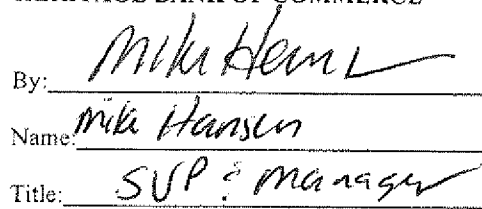 BANK OF COMMERCE
By: Mike Hansen
Name: Mike Hansen
Title: SVP & Manager